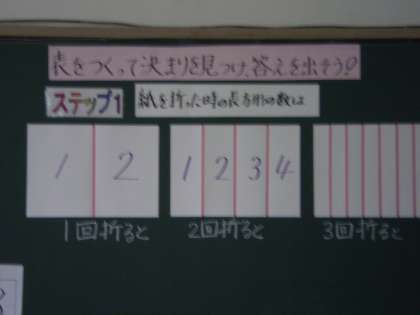 表をつくって決まりを見つけ、答えを出そう!
ステップ1
紙を折った時の長方形の数は
1 2
1 2 3 4
1回折ると
2回折ると
3回折ると